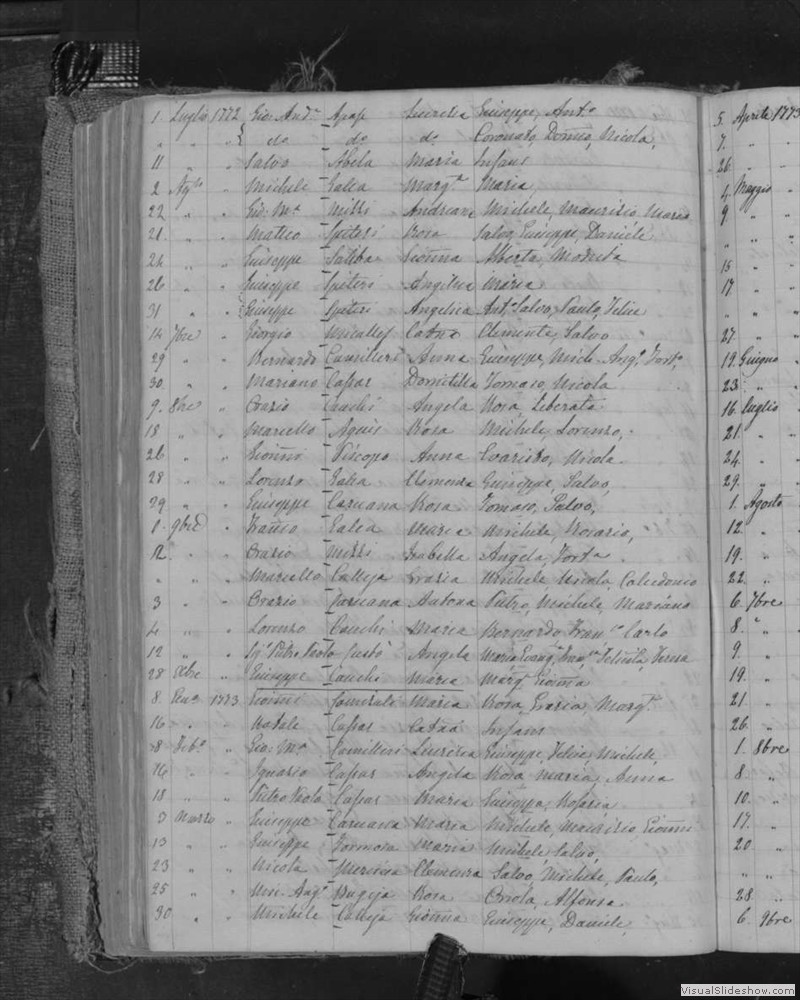 1 Luglio 1772 Gio: And.ª Apap Lucretia Giuseppe, Ant.º
" " " do do do Coronato, Donno, Nicola,
11 " " Salvo Abela Maria Infans
2 Ag.to " Michele Galea Marg.ta Maria
22 " " Gio. M.ª Mizzi Andreana Michele, Maurisio, Maria
21 " " Matteo Spiteri Rosa Salvo, Giuseppe, Daniele
24 " " Giuseppe Gionna Alberta, Modesta
26 " " Giuseppe Spiteri Angelica Maria
31 " " Giuseppe Spiteri Angelica Ant.º Salvo, Paulo, Felice
14 7bre " Giorgio Micallef Catna Clemente, Salvo
29 " " Bernardo Camilleri Anna Giuseppe, Mich. Ang.º Fort.º
30 " " Mariano Caspar Domitilla Tomaso, Nicola
9 8bre " Orazio Cauchi Angela Rosa, Liberata
18 " " Marcello Agius Rosa Michele, Lorenzo,
26 " " Gionni Piscopo Anna Evaristo, Nicola
28 " " Lorenzo Galea Clemenza Giuseppe, Salvo,
29 " " Giuseppe Caruana Rosa Tomaso, Salvo,
1 9bre " Franco Galea Maria Michele, Rosario,
2 " " Orazio Mizzi Isabella Angela, Forta
" " " Marcello Calleja Grazia Michele Nicola, Calcedonio
3 " " Orazio Caruana Antona Pietro, Michele, Mariano
4 " " Lorenzo Cauchi Maria Bernardo, Fran.co Carlo
12 " " Pietro Paolo Angela Maria Evang.ta Teresa
28 Xbre " Giuseppe Cauchi Maria Marg.ta Gionna
8 1773 Gionni Maria Rosa, Grazia, Marg.ta
16 " " Natale Caspar Catna Infans
8 Feb.º " Gio: M.ª Camilleri Lucrezia Giuseppe, Felice, Michele,
16 " " Ignazio Caspar Angela Rosa, Maria, Anna
18 " " Pietro Paolo Caspar Maria Giuseppa, Rosaria
3 Marzo " Giuseppe Caruana Maria Michele, Maurizio, Gionni
13 " " Giuseppe Formosa Maria Michele, Salvo,
23 " " Nicola Mercieca Clemenza Salvo, Michele, Paulo,
25 " " Mic. Ang.º Bugeja Rosa Alfonsa
30 " " Michele Calleja Gionna Giuseppe, Daniele,
5. Aprile 1773
7. " "
26. " "
4. Maggio "
9 " "
" " "
15 " "
17. " "
" " "
27. " "
19. Giugno "
23 " "
16. Luglio "
21. " "
24. " "
29. " "
1. Agosto "
12. " "
19. " "
22. " "
6. 7bre
8. " "
9. "
19. "
21 "
26. "
1. 8bre
8 "
10. "
17. "
20. "
" "
28 "
6. 9bre
VisualSlideshow.com